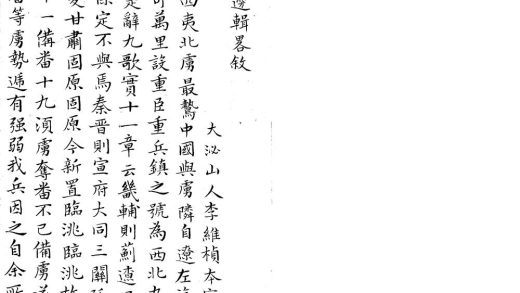 邊輯畧敘
大泌山人李維楨本寧
四夷北虜最驁中國與虜隣自遼左
可萬里設重臣重兵鎮之號為西北九
楚辭九歌實十一章云畿輔則薊遼
保定不與焉秦晉則宣府大同三關
夏甘肅固原固原今新置臨洮臨洮故
一備番十九湏虜奪番不已備虜
等虜勢遞有强弱我兵因之自余所